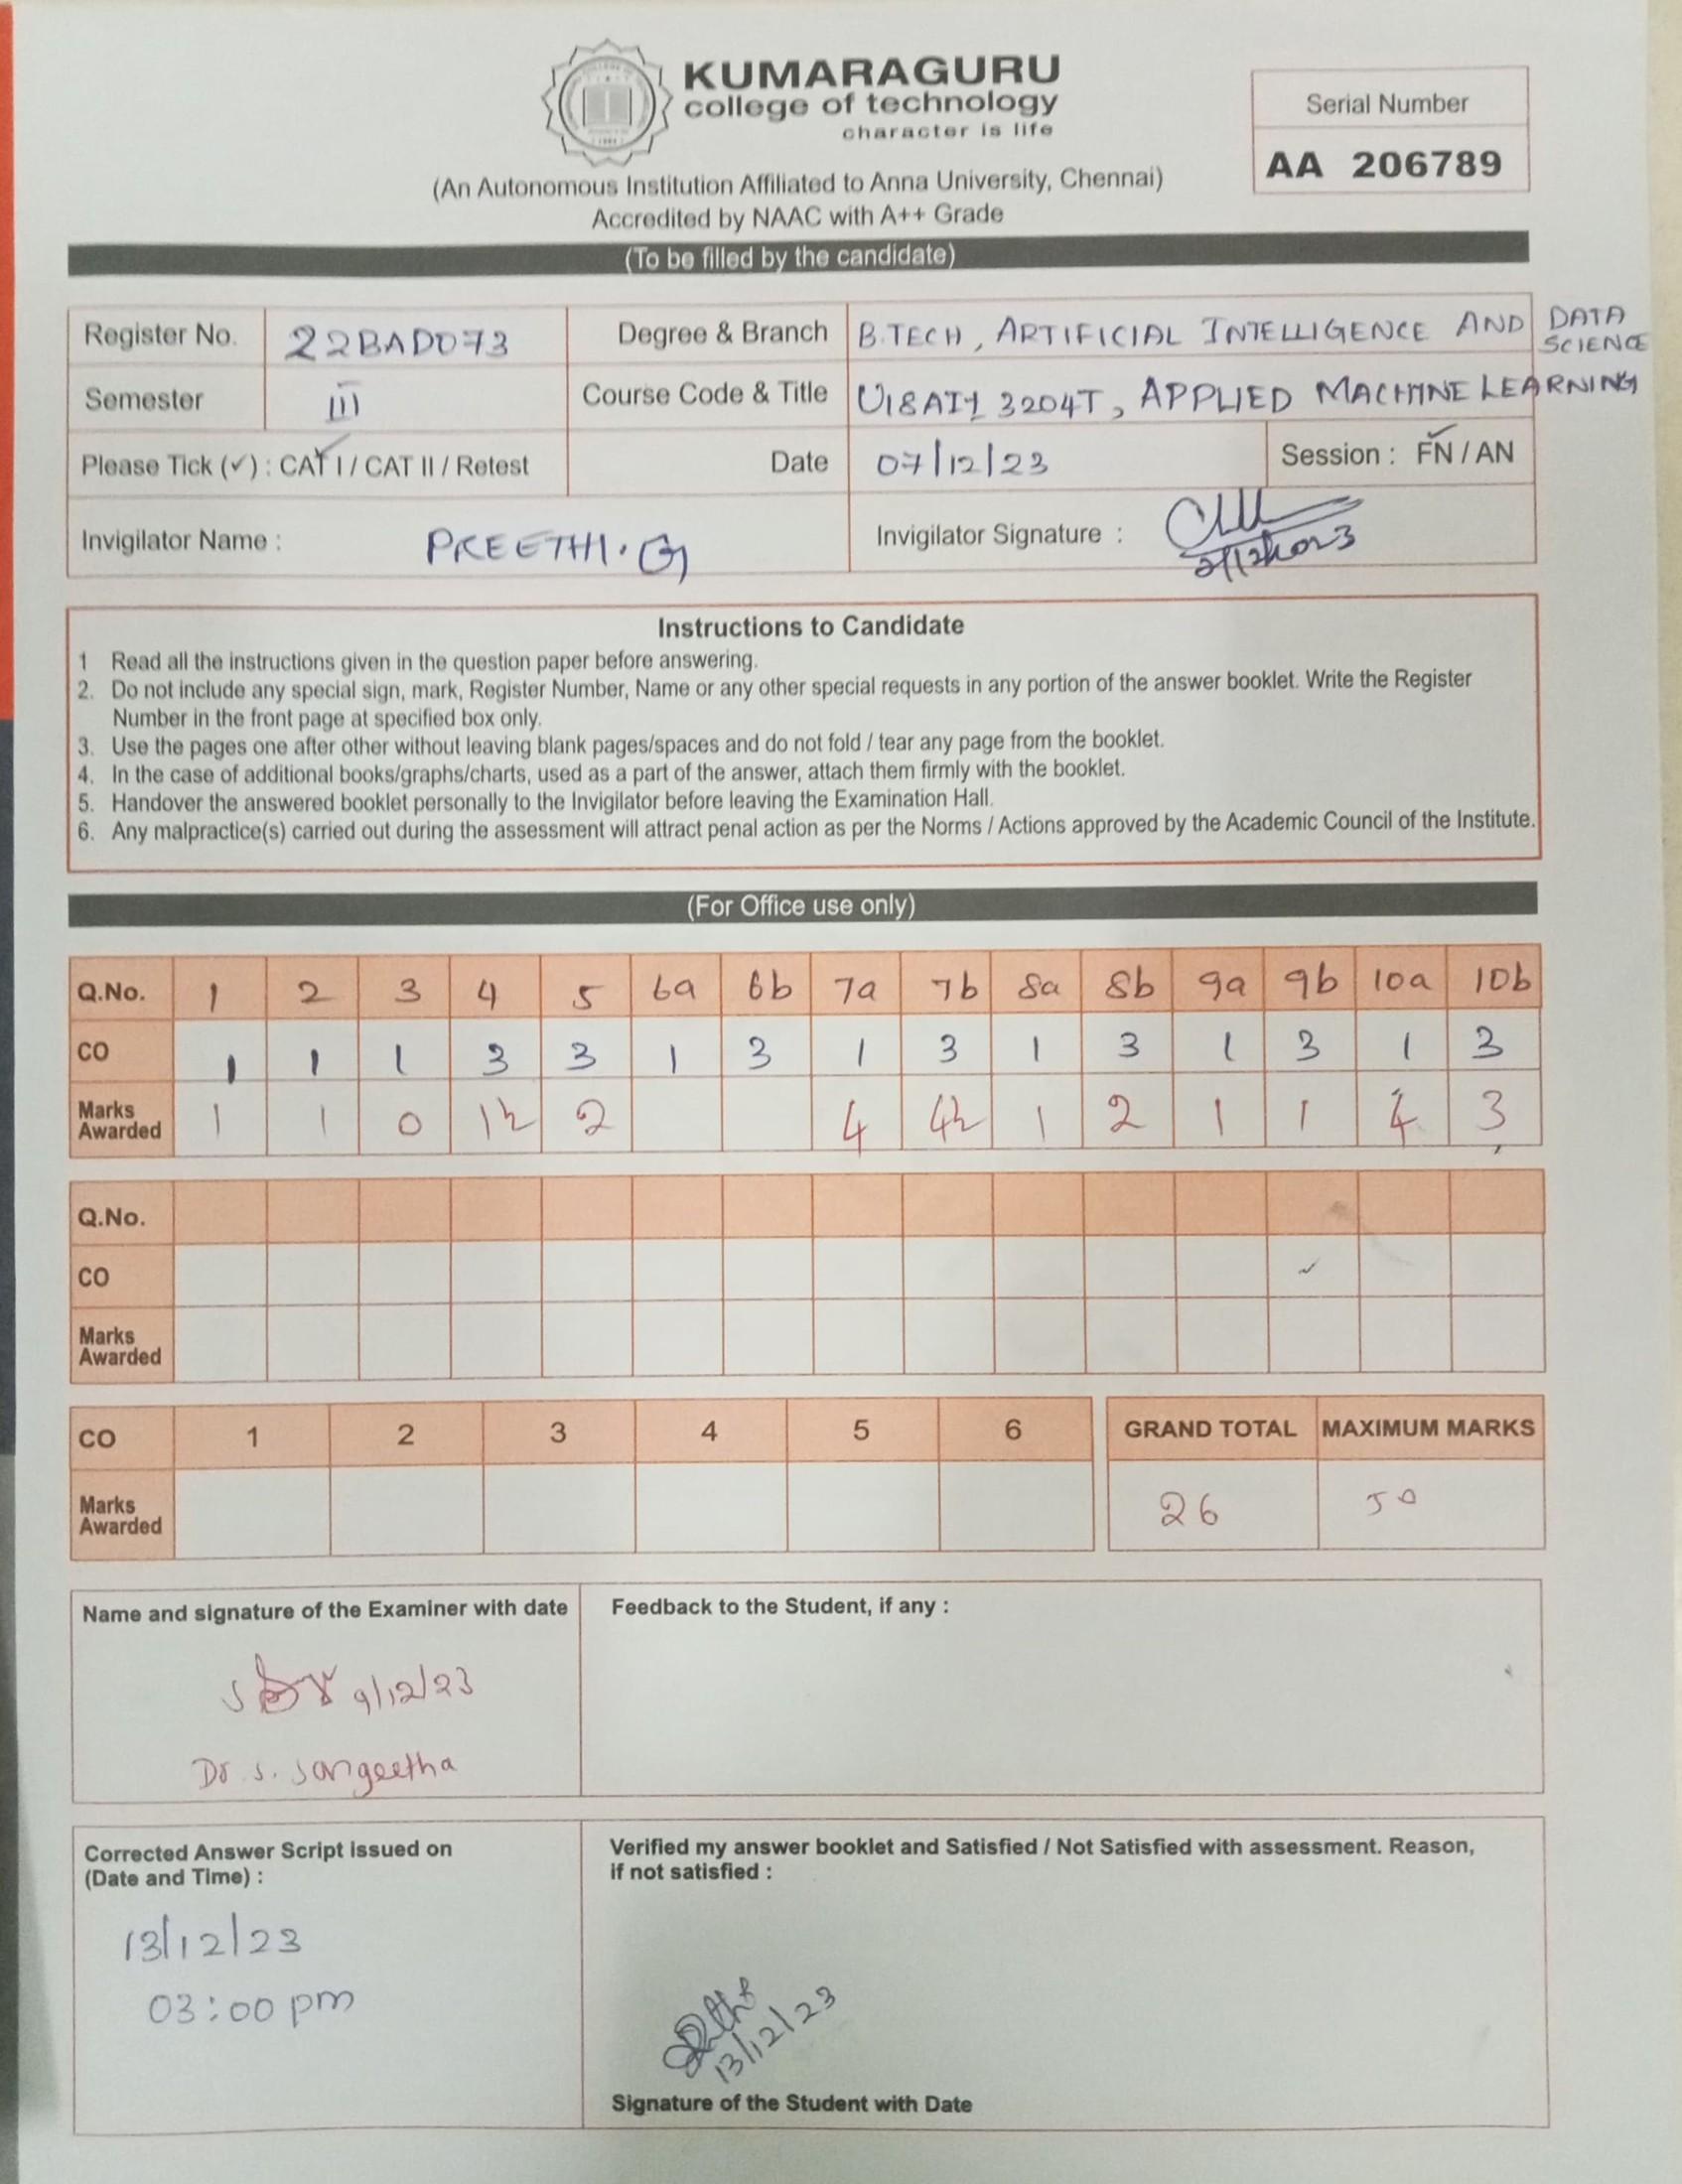 KUMARAGURU
college of technology
character is life
Serial Number
AA 206789
(An Autonomous Institution Affiliated to Anna University, Chennai)
Accredited by NAAC with A++ Grade
(To be filled by the candidate)
Register No. 22BAD073 Degree & Branch B.TECH, ARTIFICIAL INTELLIGENCE AND DATA SCIENCE
Semester III Course Code & Title U18AII 3204T, APPLIED MACHINE LEARNING
Please Tick (✓) : CAT I / CAT II / Retest Date 07/12/23 Session : FN / AN
Invigilator Name : PREETHI. G Invigilator Signature :
Instructions to Candidate
1 Read all the instructions given in the question paper before answering.
2. Do not include any special sign, mark, Register Number, Name or any other special requests in any portion of the answer booklet. Write the Register
Number in the front page at specified box only.
3. Use the pages one after other without leaving blank pages/spaces and do not fold / tear any page from the booklet.
4. In the case of additional books/graphs/charts, used as a part of the answer, attach them firmly with the booklet.
5. Handover the answered booklet personally to the Invigilator before leaving the Examination Hall.
6. Any malpractice(s) carried out during the assessment will attract penal action as per the Norms / Actions approved by the Academic Council of the Institute.
(For Office use only)
Q.No. 1 2 3 4 5 6a 6b 7a 7b 8a 8b 9a 9b 10a 10b
CO 1 1 1 3 3 1 3 1 3 1 3 1 3 1 3
Marks Awarded 1 1 0 1½ 2 4 4½ 1 2 1 1 4 3
Q.No.
CO
Marks Awarded
CO 1 2 3 4 5 6 GRAND TOTAL MAXIMUM MARKS
Marks Awarded 26 50
Name and signature of the Examiner with date
Feedback to the Student, if any :
9/12/23
Dr. S. Sangeetha
Corrected Answer Script issued on
(Date and Time) :
13/12/23
03:00 pm
Verified my answer booklet and Satisfied / Not Satisfied with assessment. Reason,
if not satisfied :
13/12/23
Signature of the Student with Date